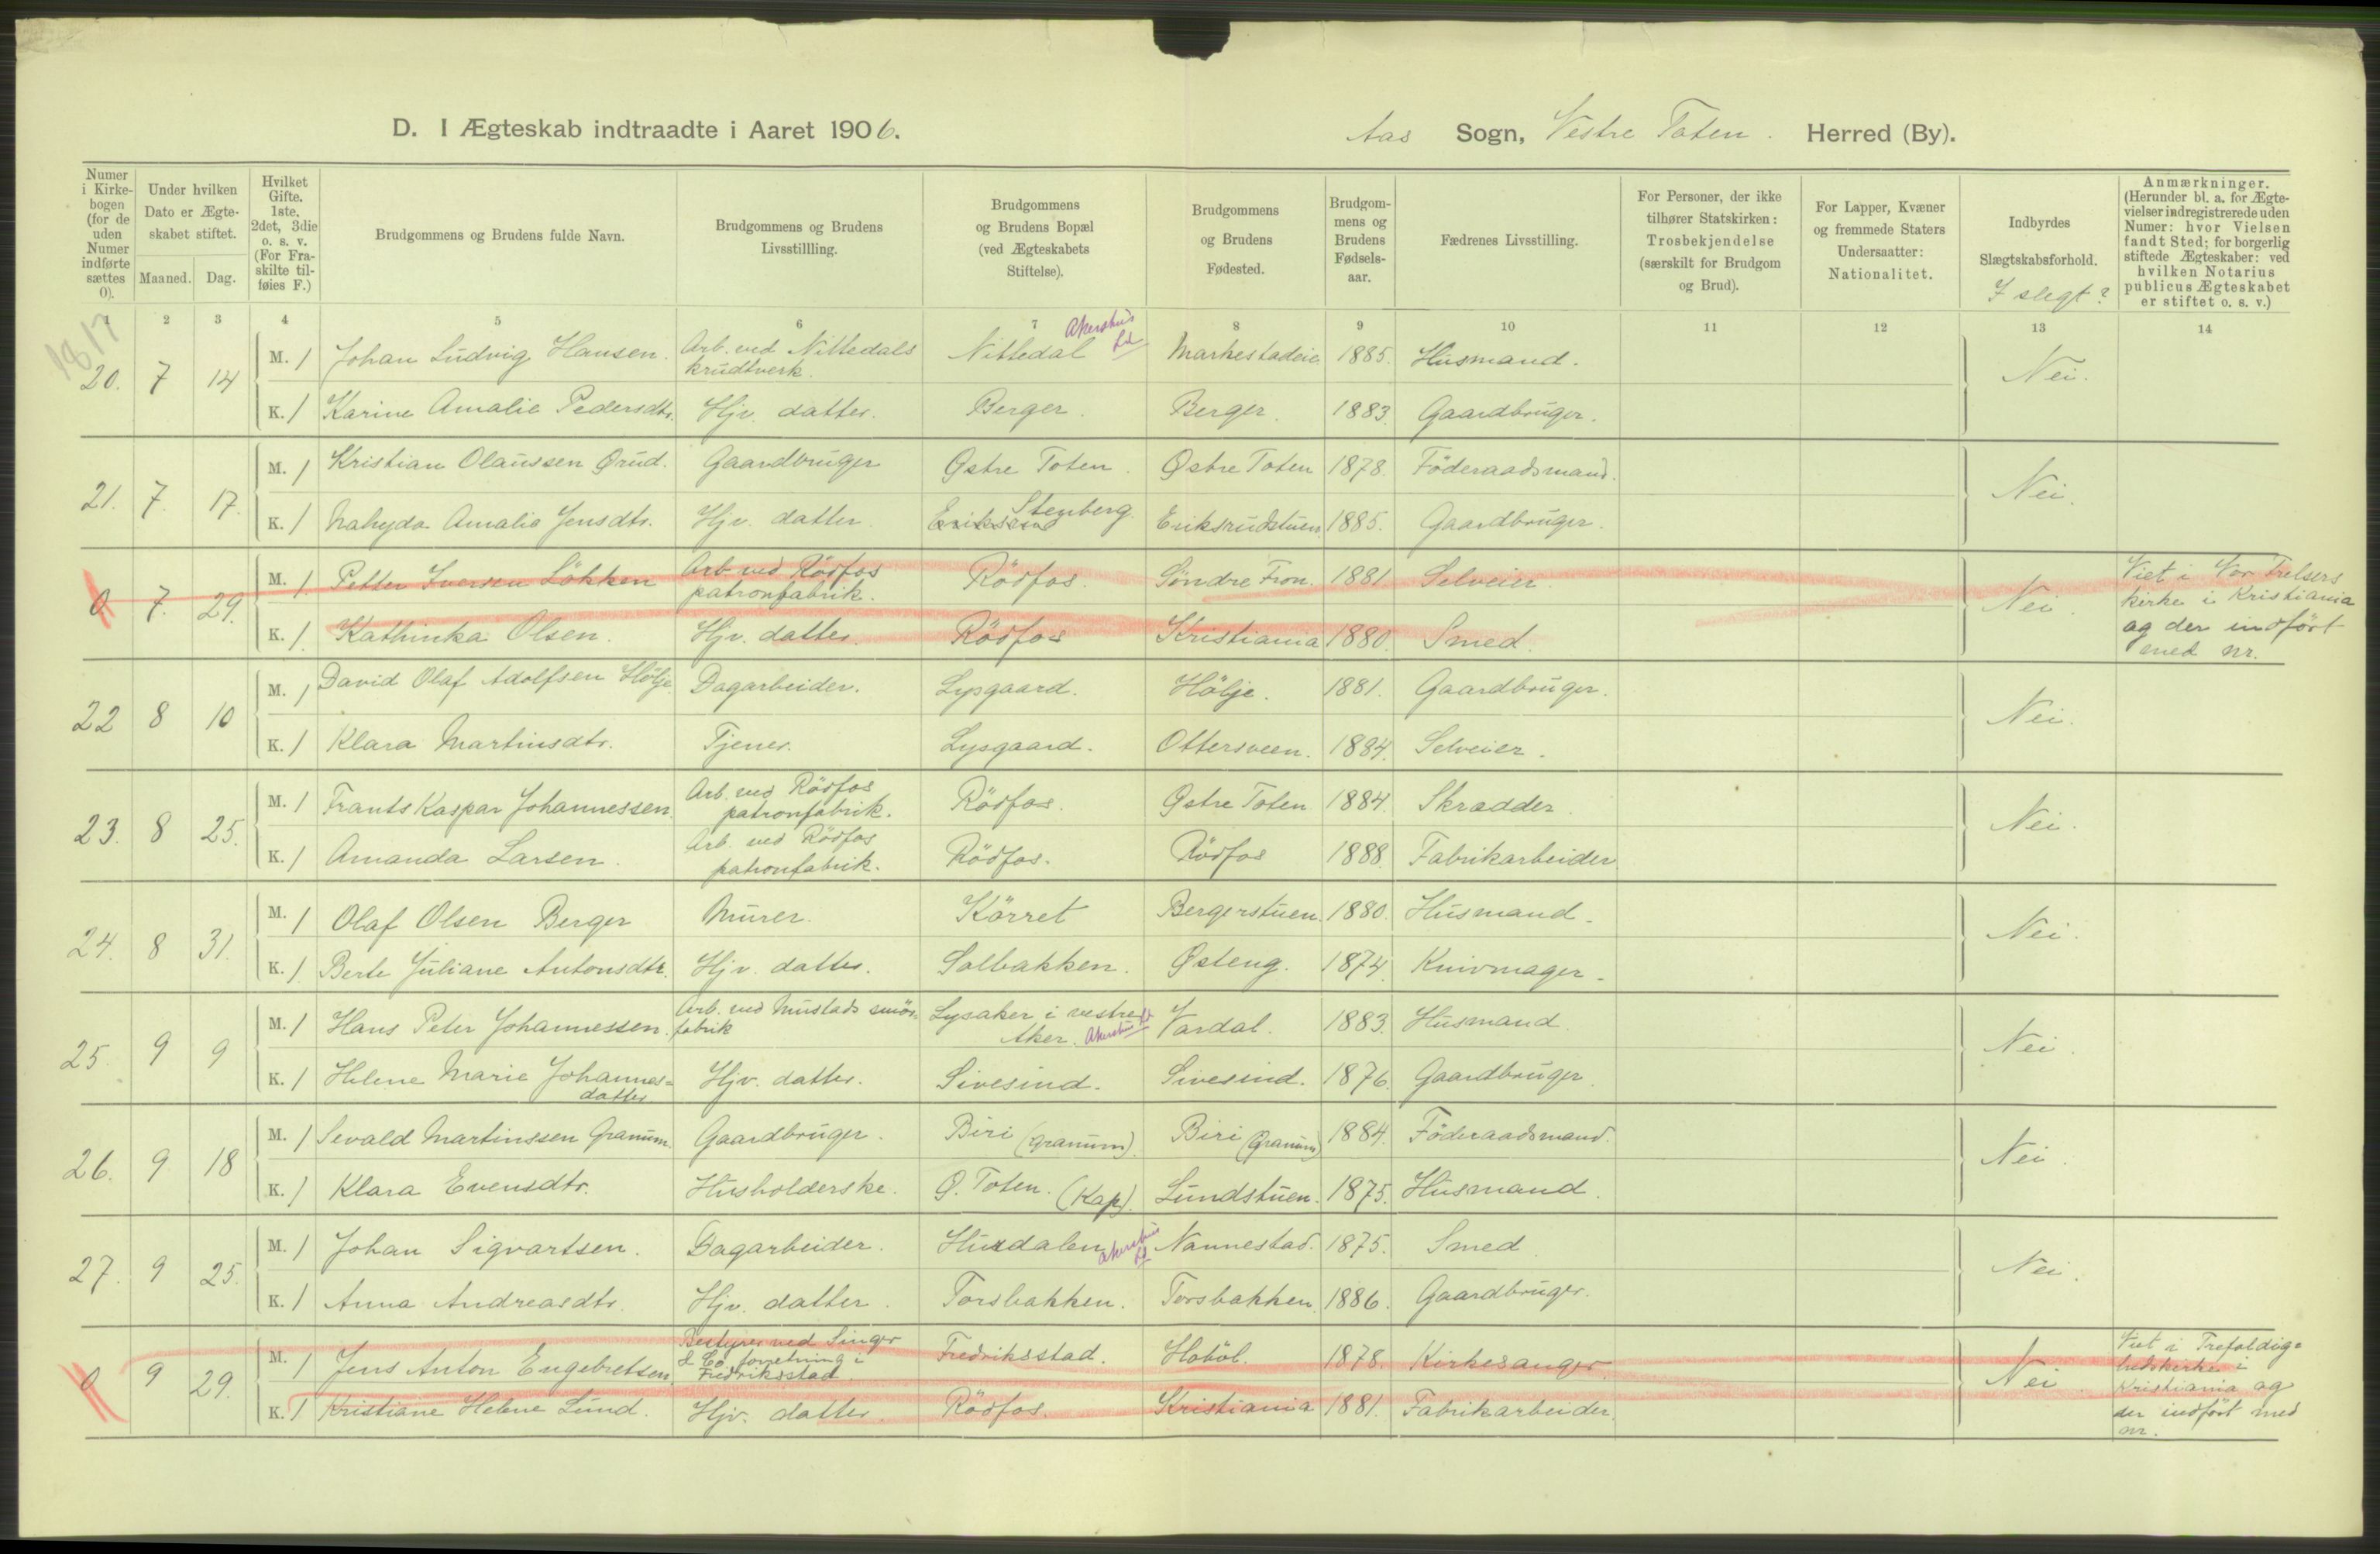 D. I Ægteskab indtraadte i Aaret 1906. Aas Sogn, Vestre Toten. Herred (By).
Numer i Kirke-bogen (for de uden Numer indførte sættes 0).
Under hvilken Dato er Ægte-skabet stiftet.
Maaned. Dag.
Hvilket Gifte. 1ste, 2det, 3die o. s. v. (For Fra-skilte til-føies F.)
Brudgommens og Brudens fulde Navn.
Brudgommens og Brudens Livsstillling.
Brudgommens og Brudens Bopæl (ved Ægteskabets Stiftelse).
Brudgommens og Brudens Fødested.
Brudgom-mens og Brudens Fødsels-aar.
Fædrenes Livsstilling.
For Personer, der ikke tilhører Statskirken: Trosbekjendelse (særskilt for Brudgom og Brud).
For Lapper, Kvæner og fremmede Staters Undersaatter: Nationalitet.
Indbyrdes Slægtskabsforhold.
I slegt?
Anmærkninger. (Herunder bl. a. for Ægte-vielser indregistrerede uden Numer: hvor Vielsen fandt Sted; for borgerlig stiftede Ægteskaber: ved hvilken Notarius publicus Ægteskabet er stiftet o. s. v.)
1 2 3 4 5 6 7 8 9 10 11 12 13 14
1817
20. 7 14 M. 1 Johan Ludvig Hansen. Arb. ved Nittedals krudtverk. Nittedal Akershus Markestadeie. 1885. Husmand. Nei.
K. 1 Karine Amalie Pedersdtr. Hjv. datter. Berger. Berger. 1883. Gaardbruger.
21. 7. 17. M. 1 Kristian Olaussen Ørud. Gaardbruger Østre Toten. Østre Toten 1878. Föderaadsmand. Nei.
K. 1 Amalie Jensdtr. Hjv. datter. Stenberg. Eriksrudstuen. 1885. Gaardbruger.
0 7. 29. M. 1 Petter Iversen Lökken Arb. ved Rödfos patronfabrik. Rödfos. Söndre Fron. 1881 Selveier. Nei. Viet i Vor Frelsers
kirke i Kristiania
og der indfört
med nr.
K. 1. Kathinka Olsen. Hjv. datter. Rödfos Kristiania 1880. Smed.
22 8 10 M. 1 David Olaf Adolfsen Hölje. Dagarbeider. Lysgaard. Hölje. 1881. Gaardbruger. Nei.
K. 1 Klara Martinsdtr. Tjener. Lysgaard. Ottersveen. 1884. Selveier.
23. 8 25. M. 1 Frants Kaspar Johannessen. Arb. ved Rödfos patronfabrik. Rödfos. Østre Toten 1884. Skrædder Nei.
K. 1 Amanda Larsen. Arb. ved Rödfos patronfabrik. Rödfos. Rödfos 1888. Fabrikarbeider
24. 8 31. M. 1 Olaf Olsen Berger Murer. Körret Bergerstuen. 1880. Husmand. Nei.
K. 1. Berte Juliane Antonsdtr. Hjv. datter. Solbakken. Østeng. 1874. Knivmager.
25. 9 9 M. 1 Hans Peter Johannessen. Arb. ved Mustads smör-fabrik Lysaker i vestre Aker. Akershus Vardal. 1883. Husmand. Nei.
K. 1 Helene Marie Johannes=datter Hjv. datter. Sivesind. Sivesind. 1876. Gaardbruger.
26. 9 18 M. 1 Sevald Martinssen Granum. Gaardbruger. Biri (Granum). Biri (Granum) 1884. Föderaadsmand. Nei.
K. 1 Klara Evensdtr. Husholderske. Ø. Toten. (Kap). Lundstuen. 1875. Husmand.
27. 9 25. M. 1 Johan Sigvartsen. Dagarbeider. Hurdalen Akershus Nannestad. 1875. Smed. Nei.
K. 1 Anna Andreasdtr. Hjv. datter. Torsbakken. Torsbakken. 1886. Gaardbruger.
0 9 29. M. 1 Jens Anton Engebretsen. Bestyrer ved Singer & Co. forretning i Fredriksstad. Fredriksstad. Haböl. 1878. Kirkesanger Nei. Viet i Trefoldig=
hedskirken i
Kristiania og
der indfört med
nr.
K. 1 Kristiane Helene Lund. Hjv. datter. Rödfos. Kristiania 1881. Fabrikarbeider.